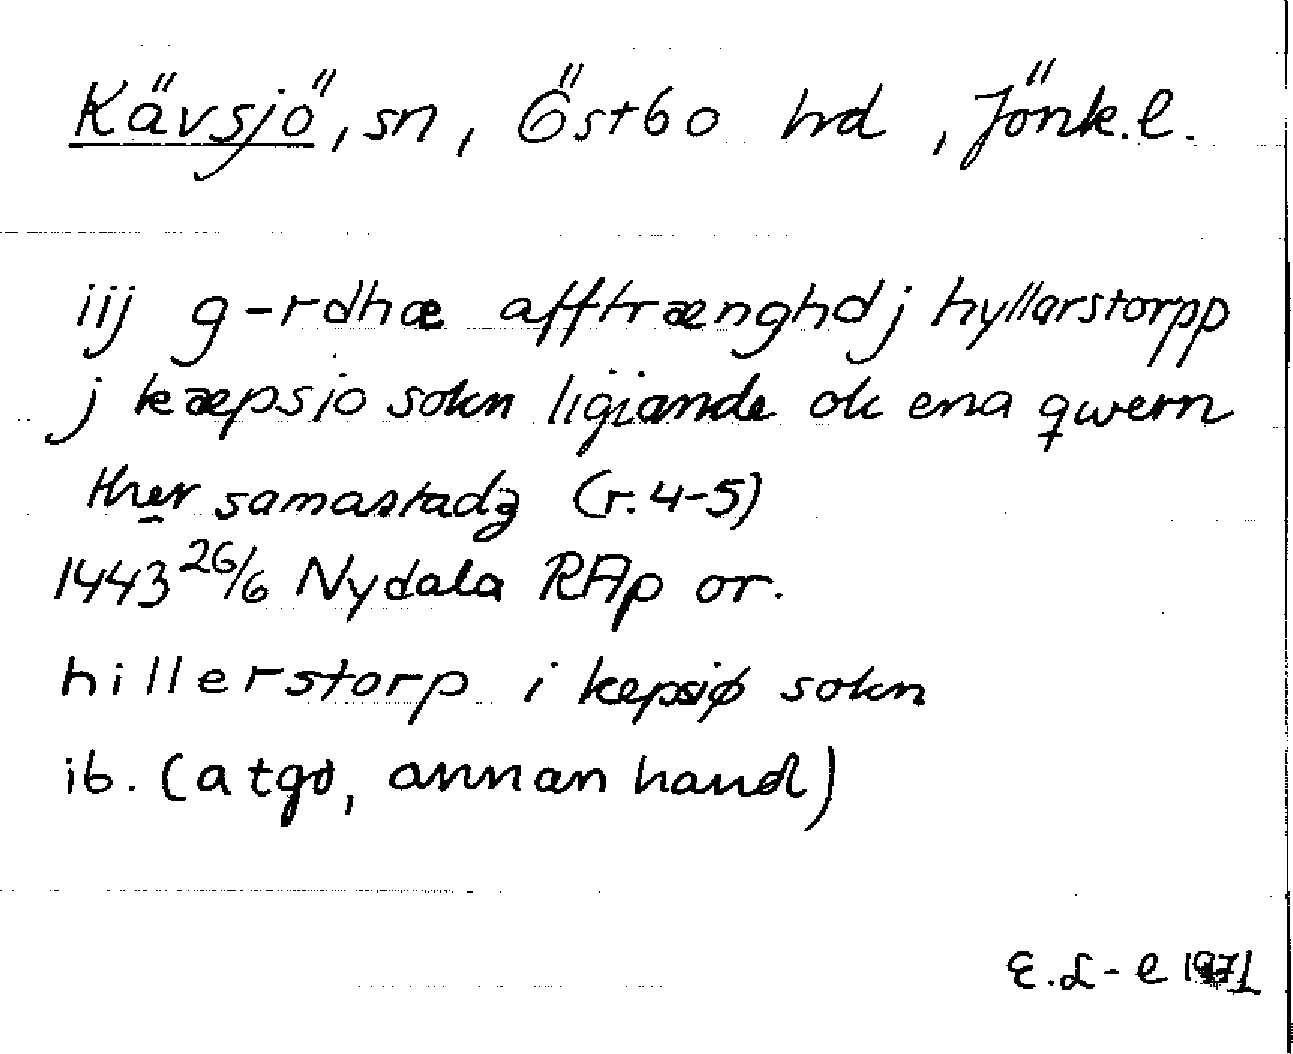 Kävsjö, sn, Östbo hd, Jönk.l.
iij g-rdhæ afftrænghd j hyllarstorpp
j kæpsio sokn ligiande ok ena qwern
ther samastadz (r. 4-5)
1443 26/6 Nydala RAp or.
hillerstorp i kepsiø sokn
ib. (atgo, annan hand)
E.L-e 1971